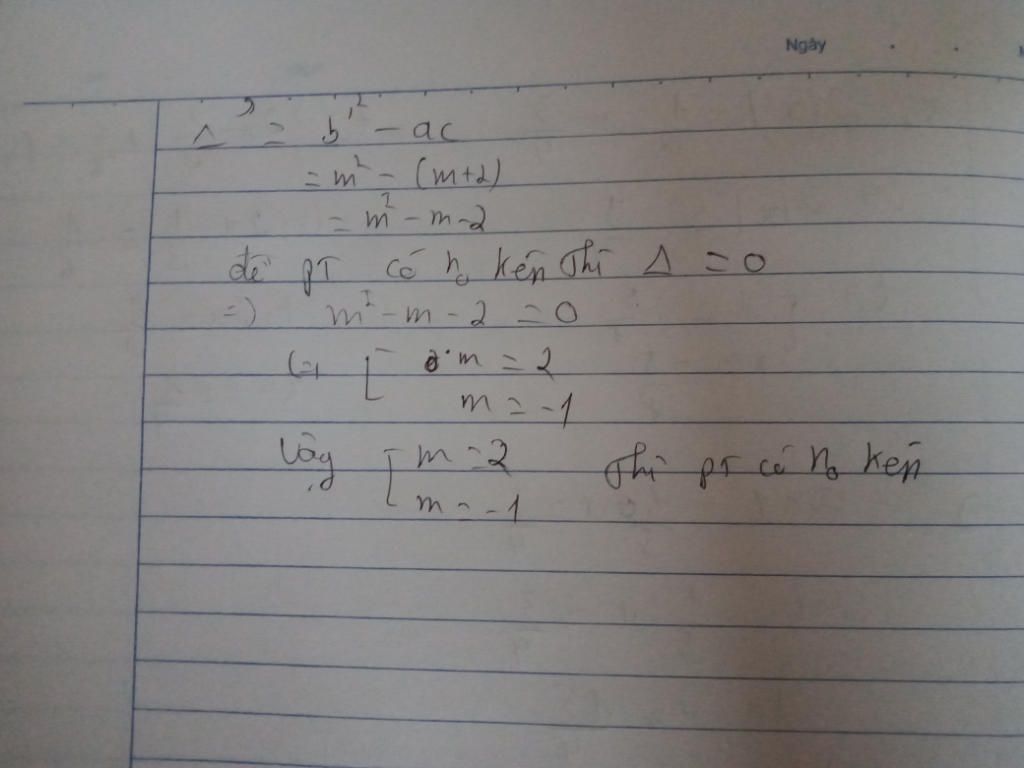 Ngày
Δ' = b'² - ac
= m² - (m+2)
= m² - m - 2
để pT có n₀ kép thì Δ = 0
=) m² - m - 2 = 0
(=) [ m = 2
m = -1
Vậy [ m = 2 thì pT có n₀ kép
m = -1